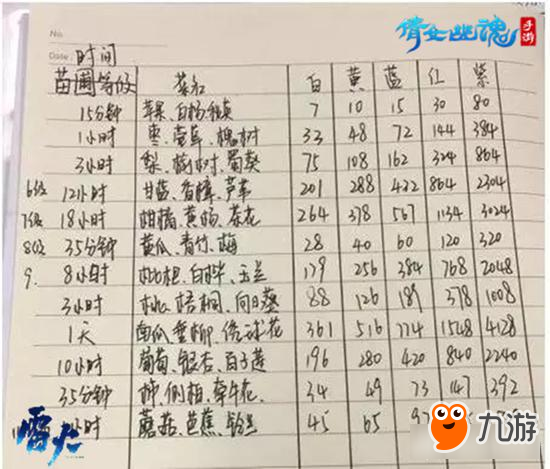 倩女幽魂
手游
No.
Date 时间
苗圃等级 名称 白 黄 蓝 红 紫
15分钟 苹果、白杨、 7 10 15 30 80
1小时 枣、萱草、槐树 33 48 72 144 384
3小时 梨、榆树、蜀葵 75 108 162 324 864
6级 12小时 甘蓝、香樟、芦苇 201 288 432 864 2304
7级 18小时 柑橘、黄杨、茶花 264 378 567 1134 3024
8级 35分钟 黄瓜、青竹、梅 28 40 60 120 320
9. 8小时 枇杷、白桦、玉兰 179 256 384 768 2048
3小时 桃、梧桐、向日葵 88 126 189 378 1008
1天 南瓜、垂柳、绣球花 361 516 774 1548 4128
10小时 葡萄、银杏、百子莲 196 280 420 840 2240
35分钟 柿、侧柏、牵牛花 34 49 73 147 392
小时 蘑菇、芭蕉、铃兰 45 65
雷火
九游